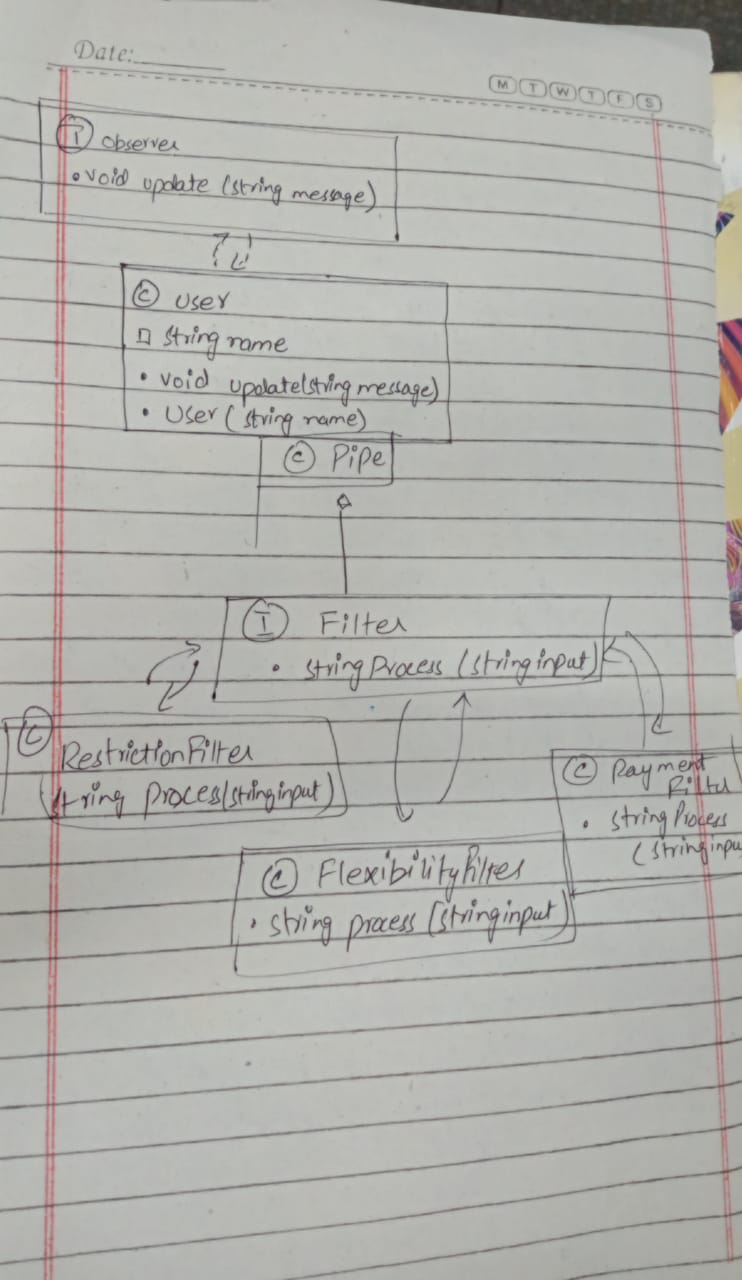 Date:
M T W T F S
I Observer
• void update (string message)
C User
□ string name
• void update(string message)
• User ( string name)
C Pipe
I Filter
• string Process (string input)
C
RestrictionFilter
string process(string input)
C Payment
Filter
• string Process
(string inpu
C FlexibilityFilter
• string process (string input)